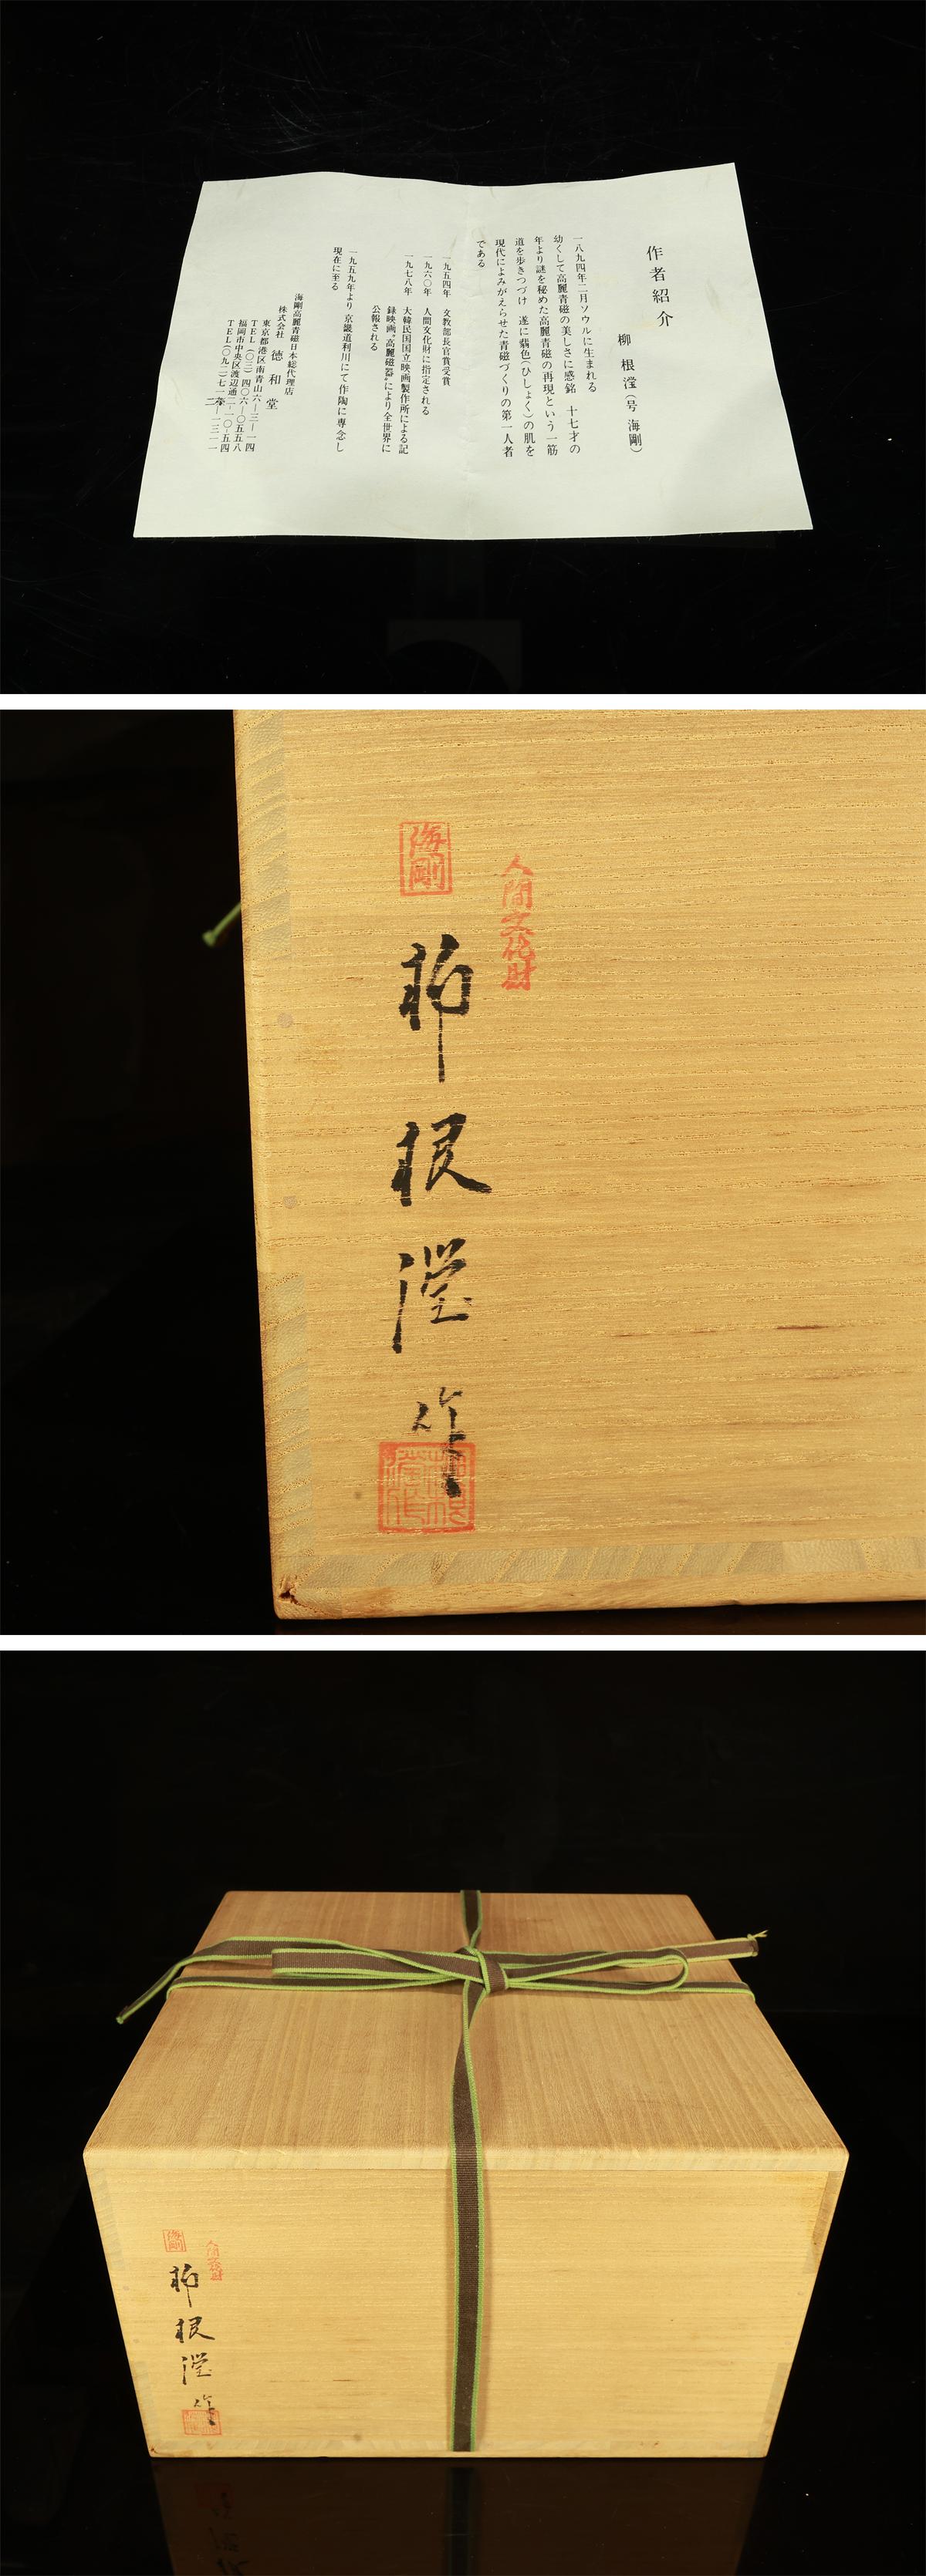 作者紹介
柳根瀅(号 海剛)
一八九四年二月ソウルに生まれる
幼くして高麗青磁の美しさに感銘 十七才の
年より謎を秘めた高麗青磁の再現という一筋
道を歩きつづけ 遂に翡色(ひしょく)の肌を
現代によみがえらせた青磁づくりの第一人者
である
一九五四年 文教部長官賞受賞
一九六〇年 人間文化財に指定される
一九七八年 大韓民国国立映画製作所による記
録映画“高麗磁器”により全世界に
公報される
一九五九年より京畿道利川にて作陶に専念し
現在に至る
海剛高麗青磁日本総代理店
株式会社 徳和堂
東京都港区南青山六―三―一四
TEL(〇三)四〇六―〇五五八
福岡市中央区渡辺通二―一〇―五四
TEL(〇九二)七一
人間文化財
海剛
柳根瀅作
柳根瀅作
人間文化財
海剛
柳根瀅作